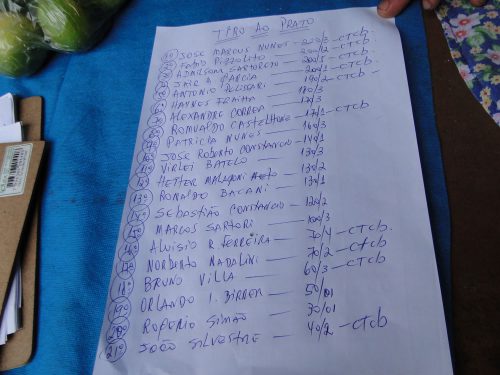 TIRO AO PRATO
1º JOSE MARCUS NUNES - 200/3 - CTCb
2º FABIO PIZZOLITO - 200/2 - CTCb
3º ADAILSOM SARTORETO - 200/1 - CTCb.
JAIR A GARCIA - 200/1 - CTCb
ANTONIO PELISSARI - 190/2 - CTCb
HANNES FRAITHA - 180/3
ALEXANDRE CORREA - 17/3
ROMUALDO CASTELHONE - 17/1 - CTCb
PATRICIA NUNES - 160/3
10º JOSE ROBERTO CONSTANCIO - 140/1
11º VIRLEI BATELO - 130/3
12º HEITER MALVONI NETO - 130/2
13º RONALDO BACANI - 130/1
14º SEBASTIÃO CONSTANCIO - 120/2
15º MARCUS SARTORI - 100/3
16º ALUISIO R. FERREIRA - 70/4 - CTCb.
17º NORBERTO NADALINI - 70/2 - CTCb
18º BRUNO VILLA - 60/3 - CTCb
19º ORLANDO I. BIRRER - 50/01
20º ROGÉRIO SIMÃO - 30/01
21º JOÃO SILVESTRE - 40/2 - CTCb